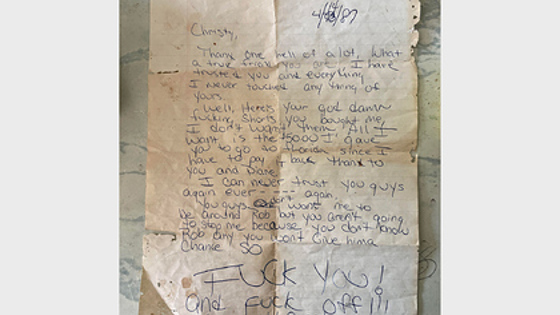 4/14/87
Christy,
Thanx one hell of a lot, What
a true friend you are. I have
trusted you and everything
I never touched any thing of
yours.
Well, Here's your god damn
fucking shorts you bought me,
I don't want them. All I
want is the $5000 I gave
you to go to Florida since I
have to pay it back thanx to
you and Diane
I can never trust you guys
again ever ----- again.
You guys don't want me to
be around Rob but you aren't going
to stop me because you don't know
Rob and you won't give him a
Chance so
FUCK YOU!
and FUCK OFF!!!